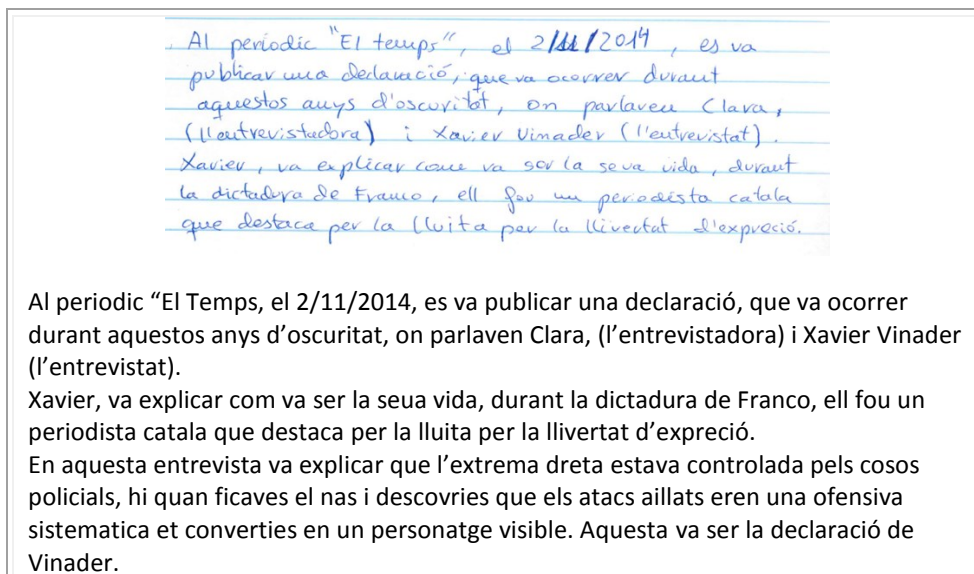 Al periodic "El temps", el 2/11/2014, es va
publicar una declaració, que va ocorrer durant
aquestos anys d'oscuritat, on parlaven Clara,
(l'entrevistadora) i Xavier Vinader (l'entrevistat).
Xavier, va explicar com va ser la seua vida, durant
la dictadura de Franco, ell fou un periodista catala
que destaca per la lluita per la llivertat d'expreció.
Al periodic “El Temps, el 2/11/2014, es va publicar una declaració, que va ocorrer
durant aquestos anys d’oscuritat, on parlaven Clara, (l’entrevistadora) i Xavier Vinader
(l’entrevistat).
Xavier, va explicar com va ser la seua vida, durant la dictadura de Franco, ell fou un
periodista catala que destaca per la lluita per la llivertat d’expreció.
En aquesta entrevista va explicar que l’extrema dreta estava controlada pels cosos
policials, hi quan ficaves el nas i descovries que els atacs aillats eren una ofensiva
sistematica et converties en un personatge visible. Aquesta va ser la declaració de
Vinader.